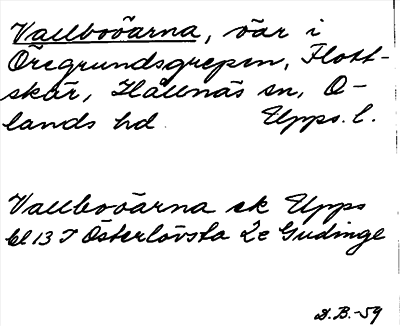 Vallboöarna, öar i
Öregrundsgrepen, Flott-
skär, Hållnäs sn, O-
lands hd. Upps. l.
Vallboöarna ek Upps
bl 13 T Österlövsta 2e Gudinge
D.B.-59